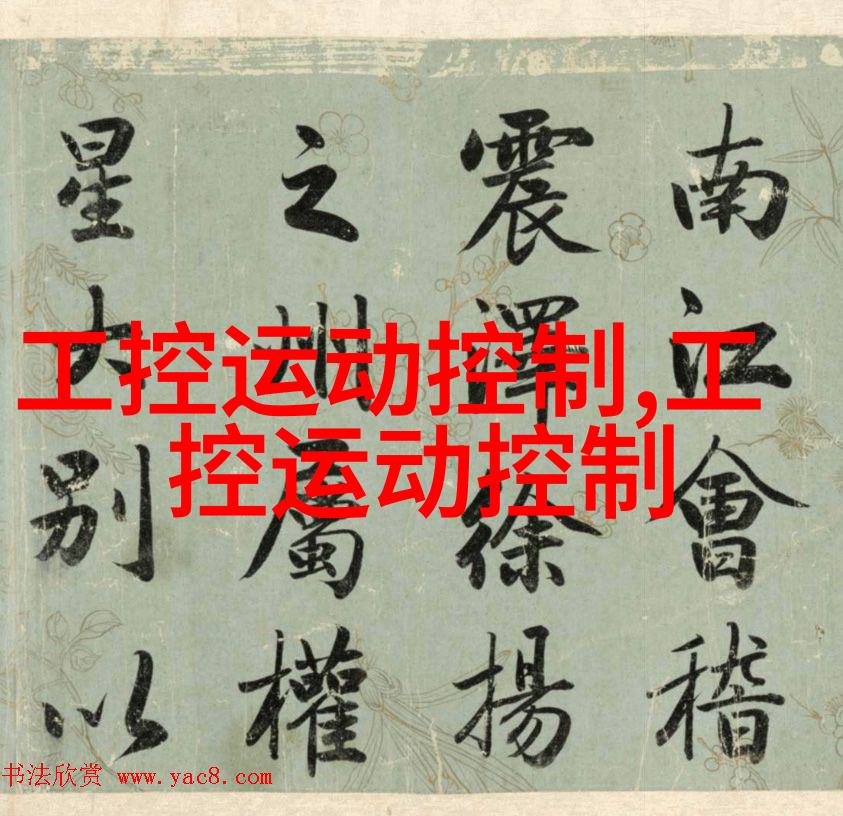 南江會稽
震澤徐揚
之州屬權
星大別以
工控运动控制,工
控运动控制
书法欣赏 www.yac8.com